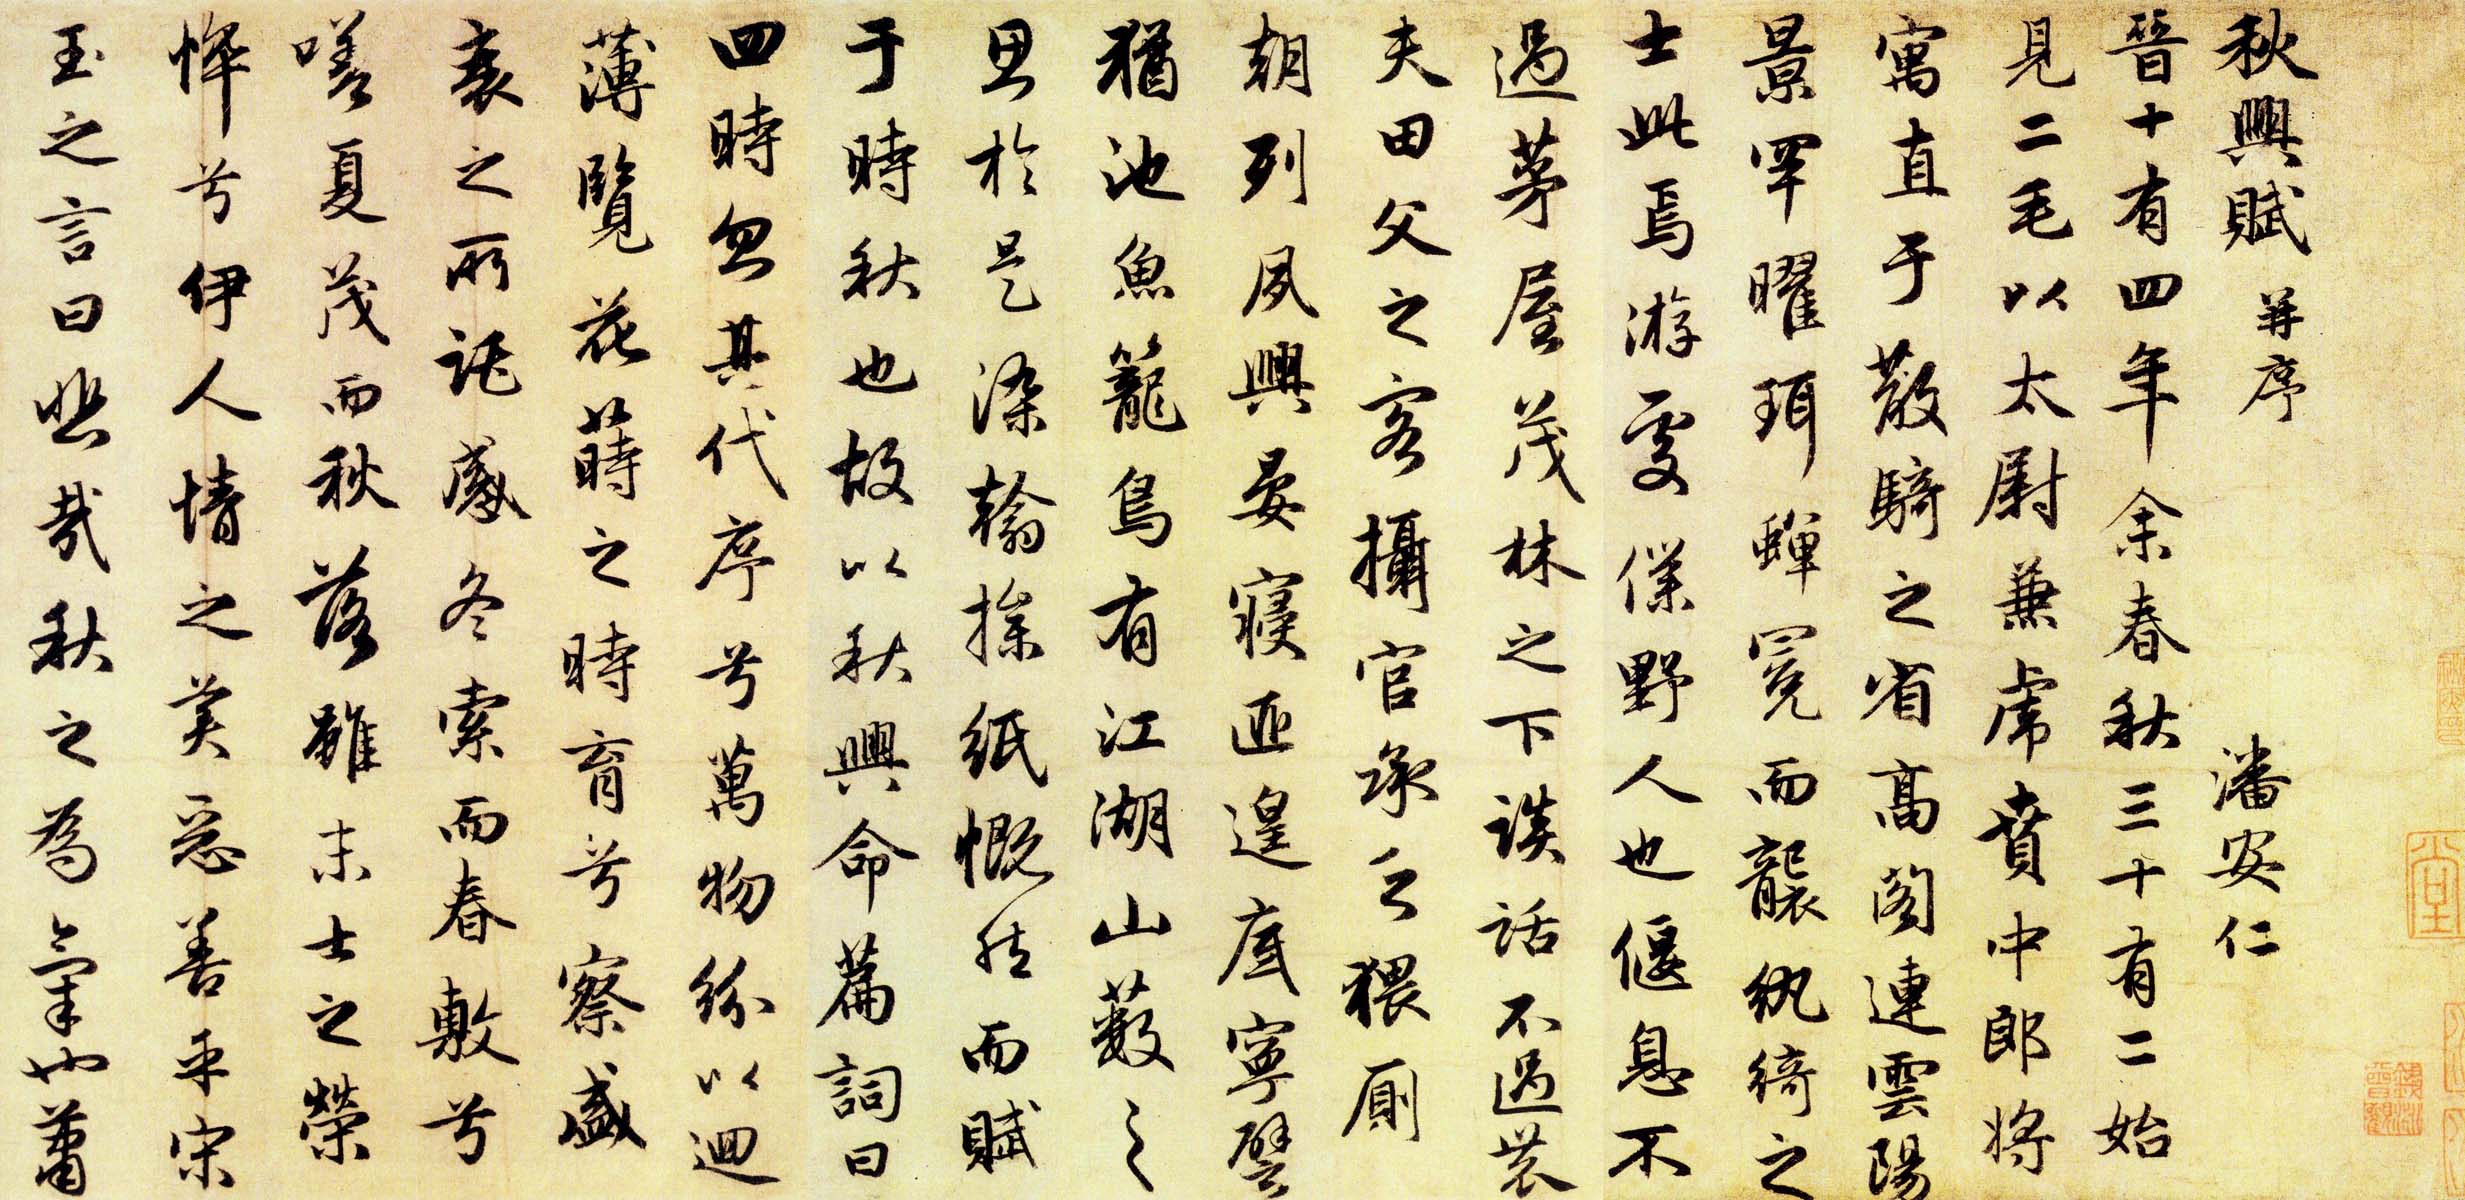 秋興賦 并序 潘安仁
晉十有四年余春秋三十有二始
見二毛以太尉兼虎賁中郎將
寓直于散騎之省高閣連雲陽
景罕曜珥蟬冕而襲紈綺之
士此焉游處僕野人也偃息不
過茅屋茂林之下談話不過農
夫田父之客攝官承乏猥廁
朝列夙興晏寢匪遑底寧譬
猶池魚籠鳥有江湖山藪之
思於是染翰操紙慨然而賦
于時秋也故以秋興命篇詞曰
四時忽其代序兮萬物紛以迴
薄覽花蒔之時育兮察盛
衰之所託感冬索而春敷兮
嗟夏茂而秋落雖末士之榮
悴兮伊人情之美惡善乎宋
玉之言曰悲哉秋之為氣也蕭